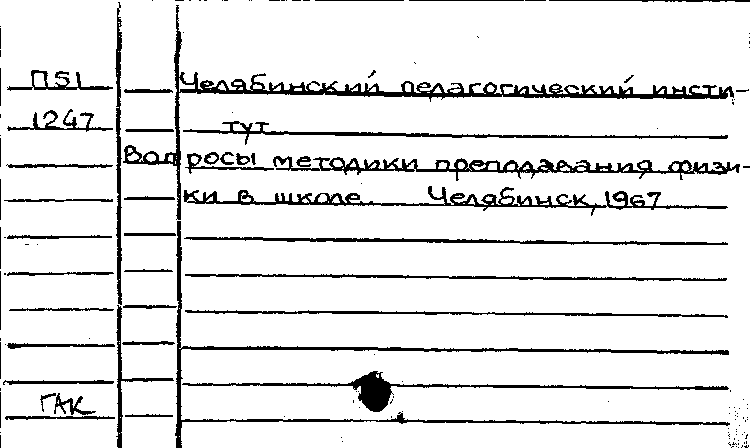 П51 Челябинский педагогический инсти-
1247 тут
Вопросы методики преподавания физи-
ки в школе. Челябинск, 1967
ГАК